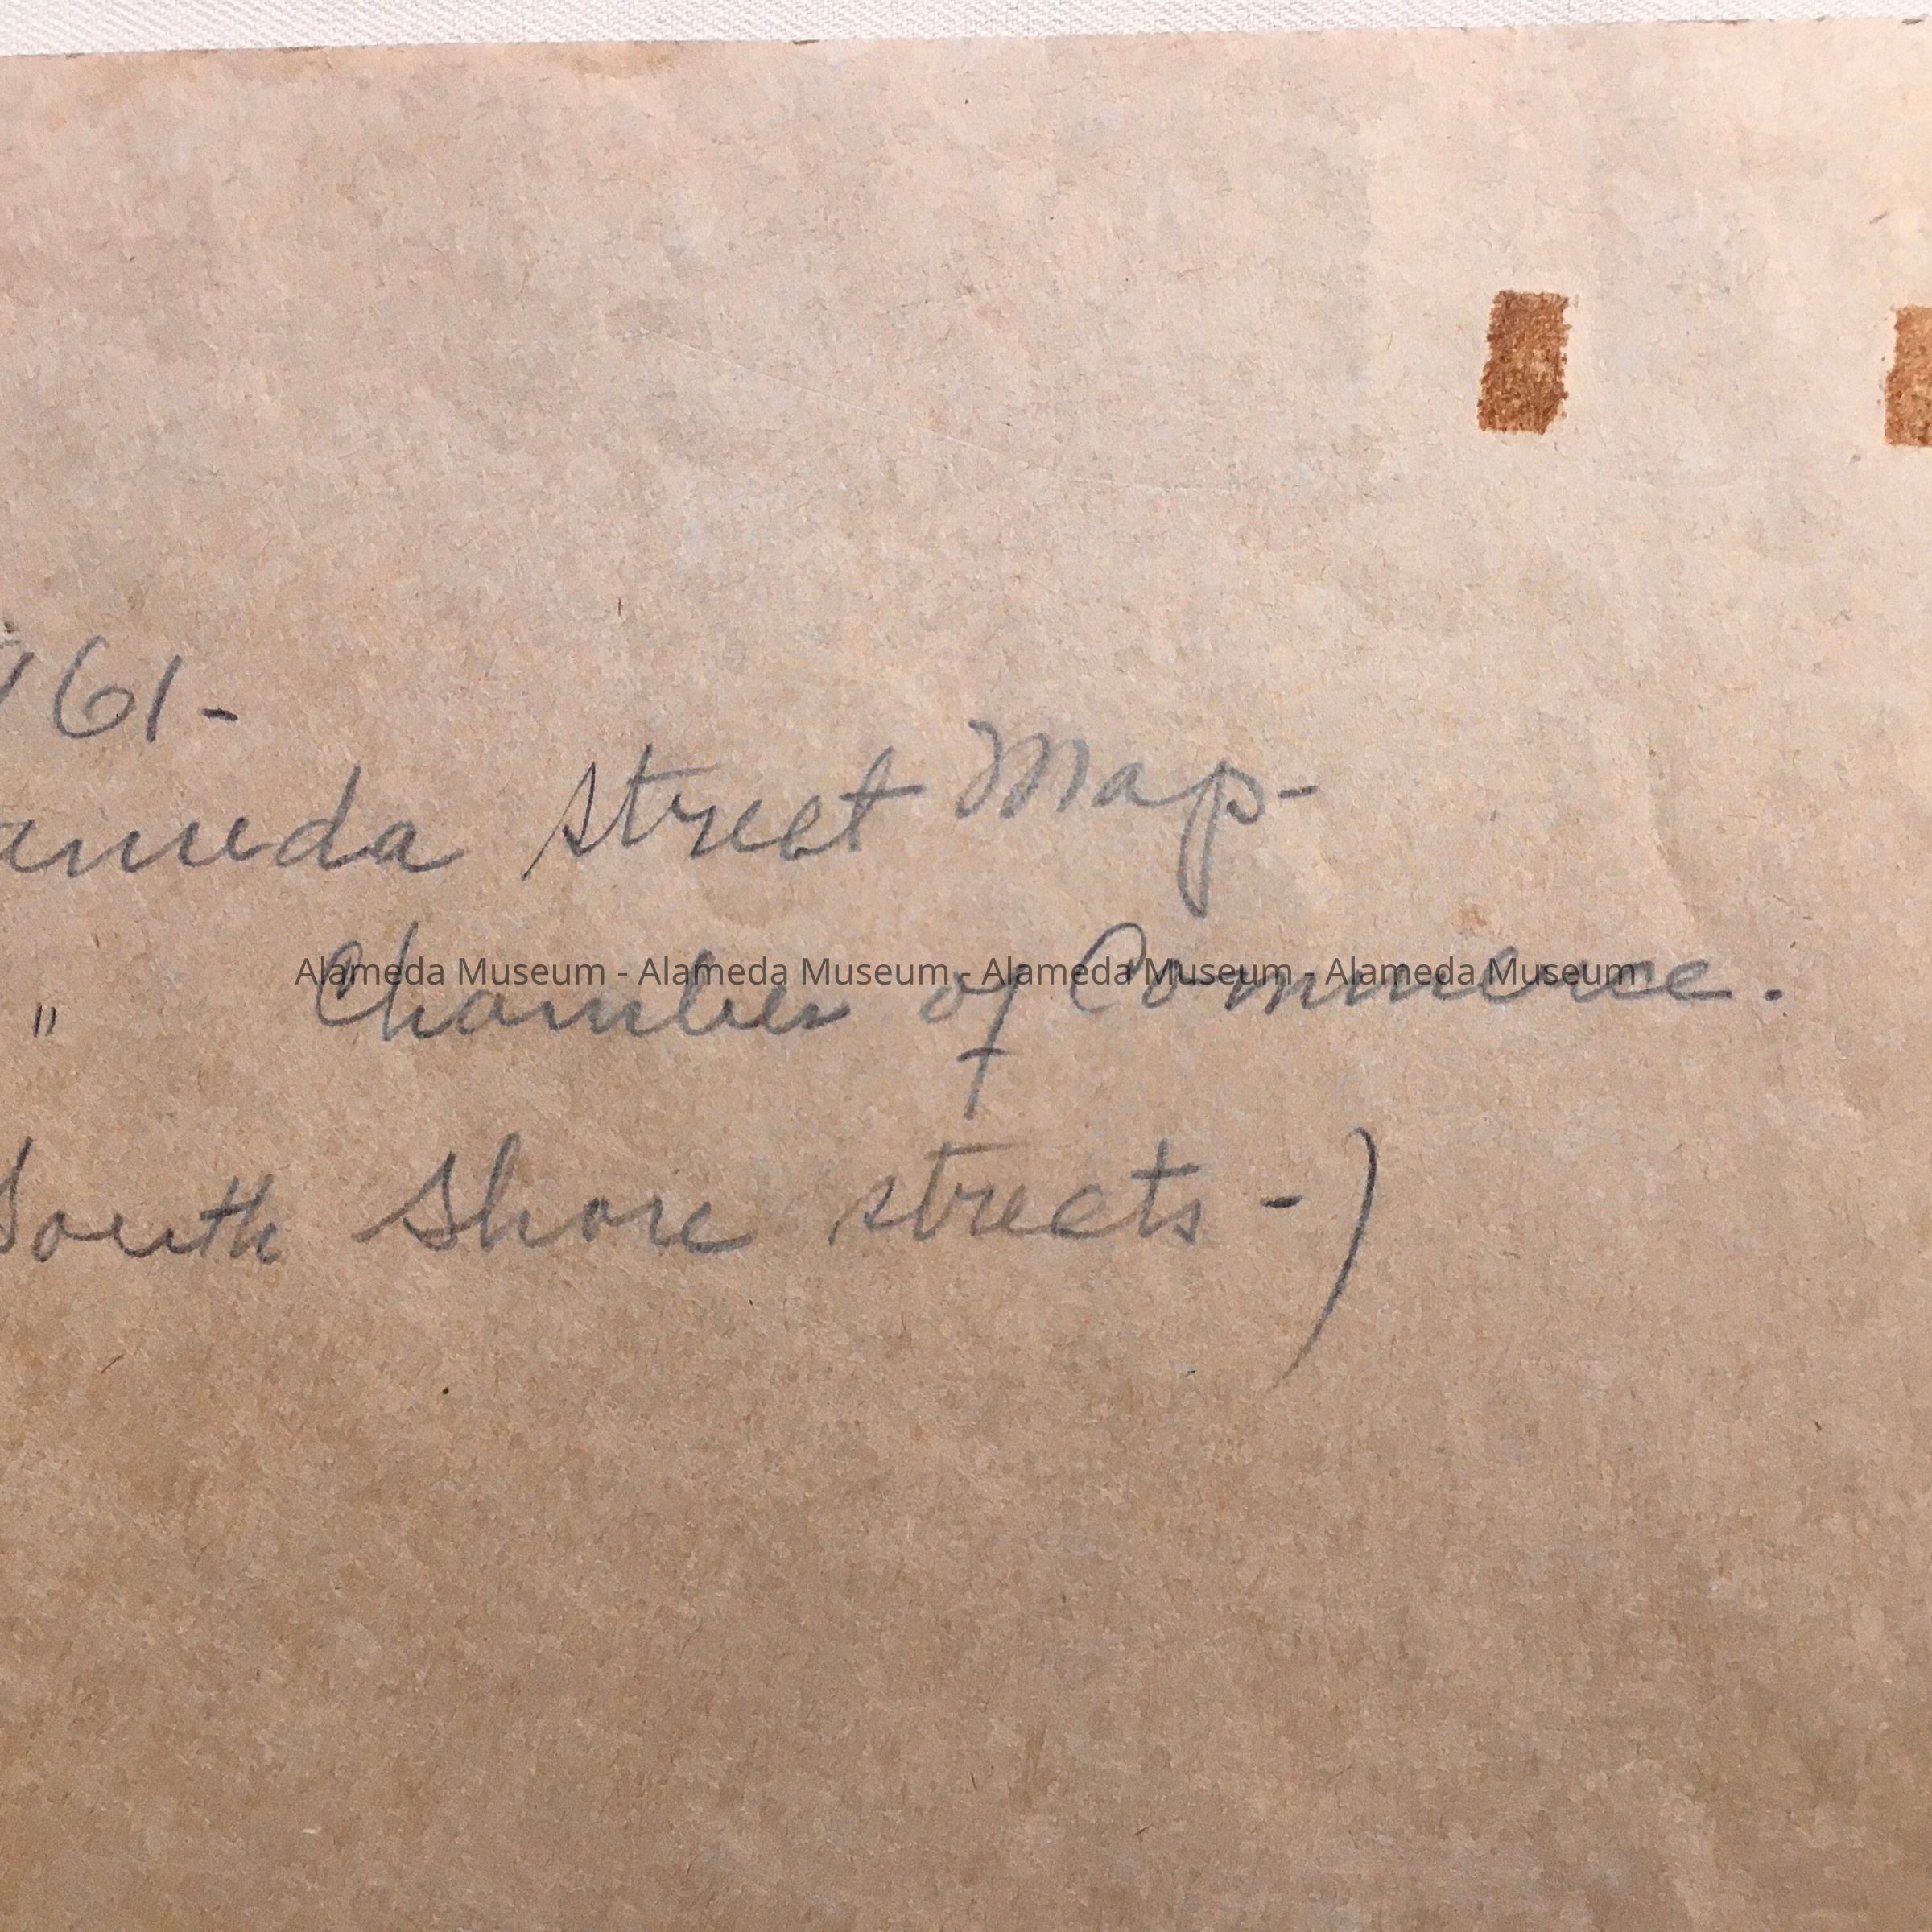 961-
ameda street Map-
" Chamber of Commerce.
Alameda Museum - Alameda Museum - Alameda Museum - Alameda Museum
South Shore streets-)